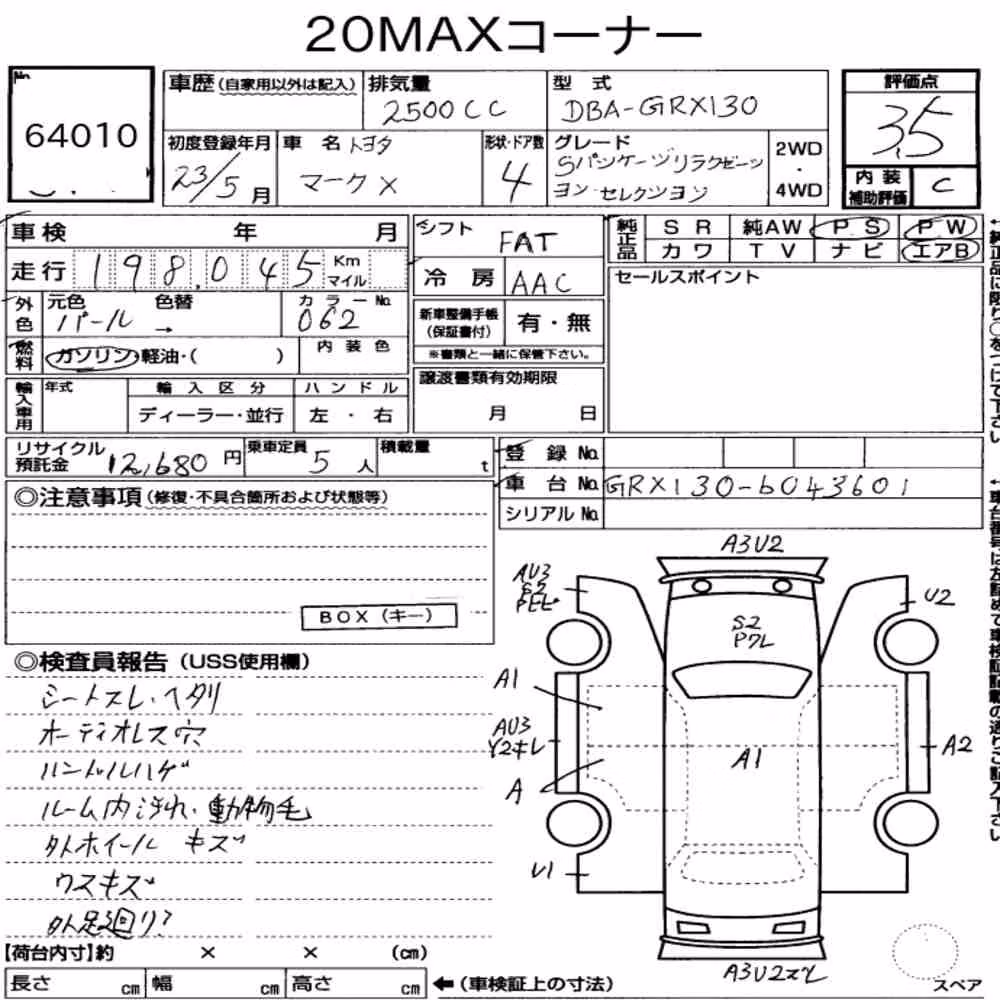 20MAXコーナー
No
64010
車歴(自家用以外は記入)
排気量
2500CC
型式
DBA-GRX130
評価点
3.5
初度登録年月
23/5月
車名 トヨタ
マークX
形状・ドア数
4
グレード
Sパッケージリラクゼーシ
ョン セレクション
2WD
・
4WD
内装
補助評価
C
車検 年 月
シフト
FAT
純正品
SR 純AW PS PW
カワ TV ナビ エアB
走行 198.045 Km
マイル
冷房 AAC
セールスポイント
外色
元色 色替 カラーNo.
パール → 062
新車整備手帳
(保証書付)
有・無
燃料
ガソリン・軽油・( )
内装色
※書類と一緒に保管下さい。
輸入車用
年式
輸入区分
ハンドル
ディーラー・並行
左・右
譲渡書類有効期限
月 日
リサイクル
預託金
12,680円
乗車定員
5人
積載量
t
登録No.
車台No. GRX130-6043601
シリアルNo.
◎注意事項(修復・不具合箇所および状態等)
BOX(キー)
◎検査員報告(USS使用欄)
シートスレ・ヘタリ
オーディオレス穴
ハンドルハゲ
ルーム内汚れ・動物毛
外ホイール キズ
ウスキズ
外足廻り?
A3U2
AU3
S2
U2
S2
A1
AU3
A1
A2
A
U1
【荷台内寸】約 × × (cm)
長さ cm 幅 cm 高さ cm
←(車検証上の寸法)
スペア
←純正品に限り○をつけて下さい